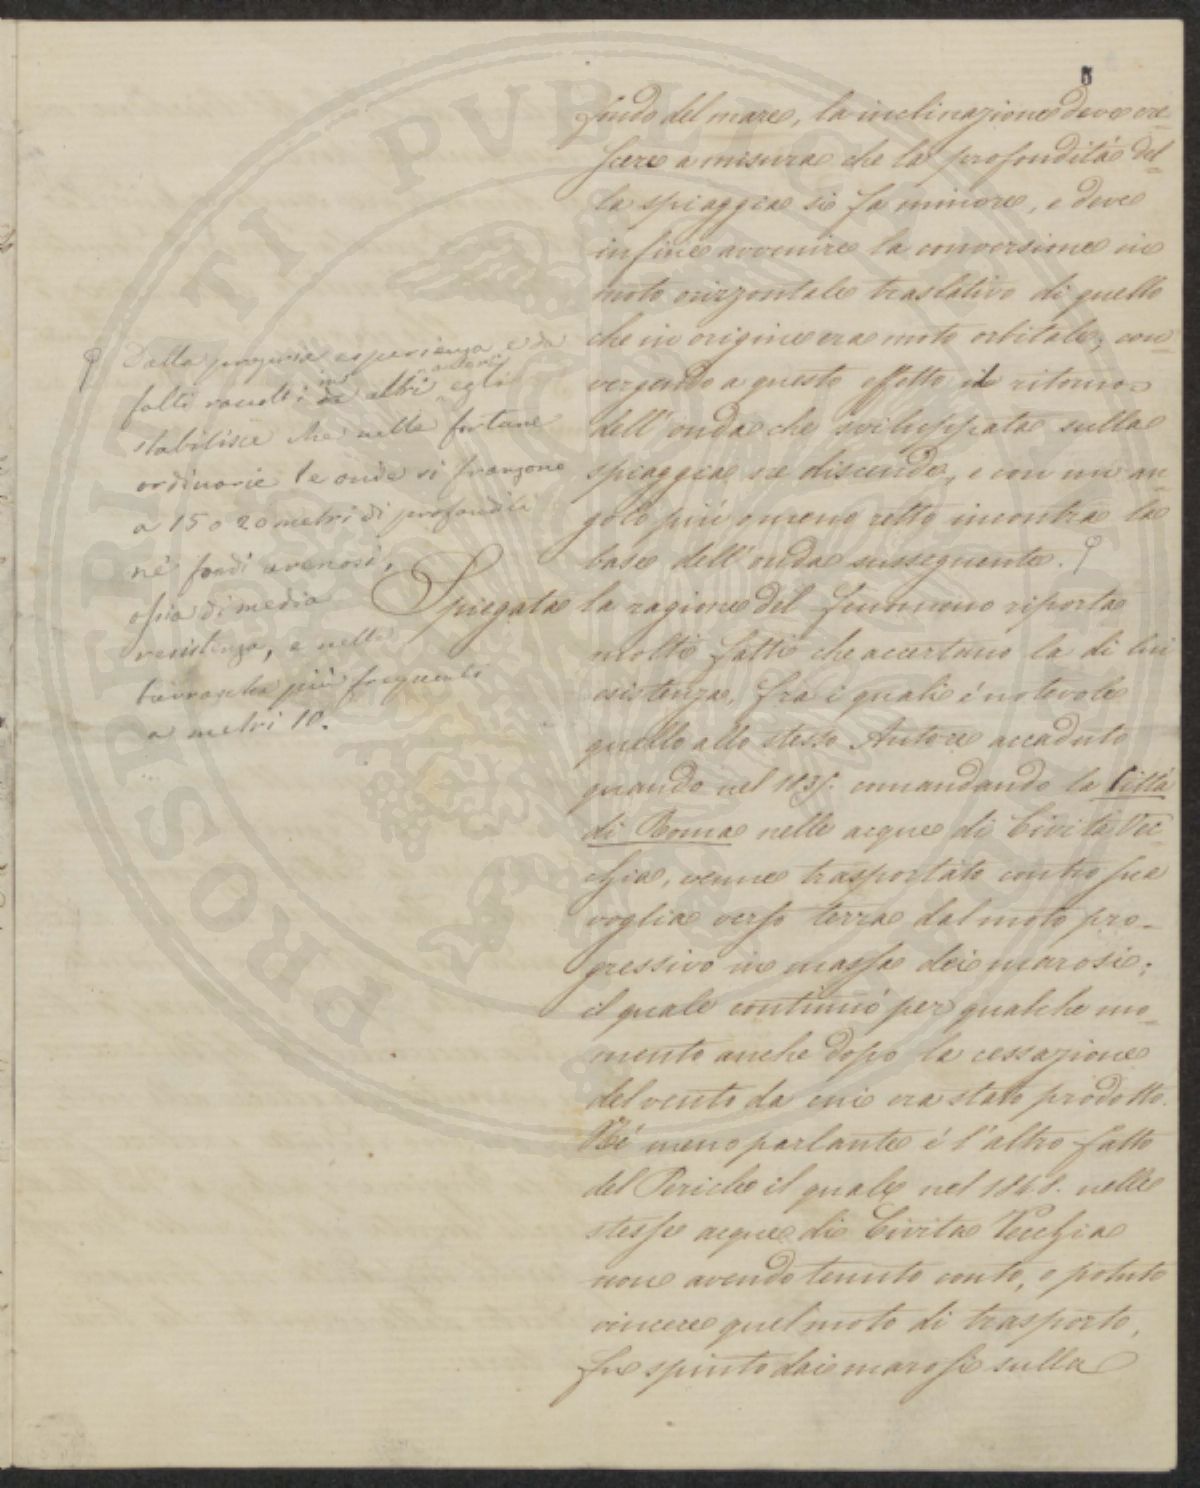 5
fondo del mare, la inclinazione deve cre=
scere a misura che la profondità del=
la spiaggia si fa minore, e deve
infine avvenire la conversione in
moto orizzontale traslativo di quello
che in origine era moto orbitale, con=
vergendo a questo effetto il ritorno
dell'onda che sviluppata sulla
spiaggia ne discende, e con un an=
golo più o meno retto incontra la
base dell'onda susseguente.
Spiegata la ragione del fenomeno riporta
molti fatti che accertano la di lui
esistenza, fra i quali è notevole
quello allo stesso Autore accaduto
quando nel 183 comandando la Città
di Roma nelle acque di Civita Vec=
chia, venne trasportato contro sua
voglia verso terra dal moto pro=
gressivo in massa dei marosi;
il quale continuò per qualche mo=
mento anche dopo la cessazione
del vento da cui era stato prodotto.
Nè meno parlante è l'altro fatto
del Pericle il quale nel 1848. nelle
stesse acque di Civita Vecchia
non avendo tenuto conto, o potuto
vincere quel moto di trasporto,
fu spinto dai marosi sulla
Dalla propria esperienza e da
fatti raccolti in altri autori egli
stabilisce che nelle fortune
ordinarie le onde si frangono
a 15 o 20 metri di profondità
nè fondi arenosi,
ossia di media
resistenza, e nelle
burrasche più frequenti
a metri 10.
PROSPERITATI PVBLICAE